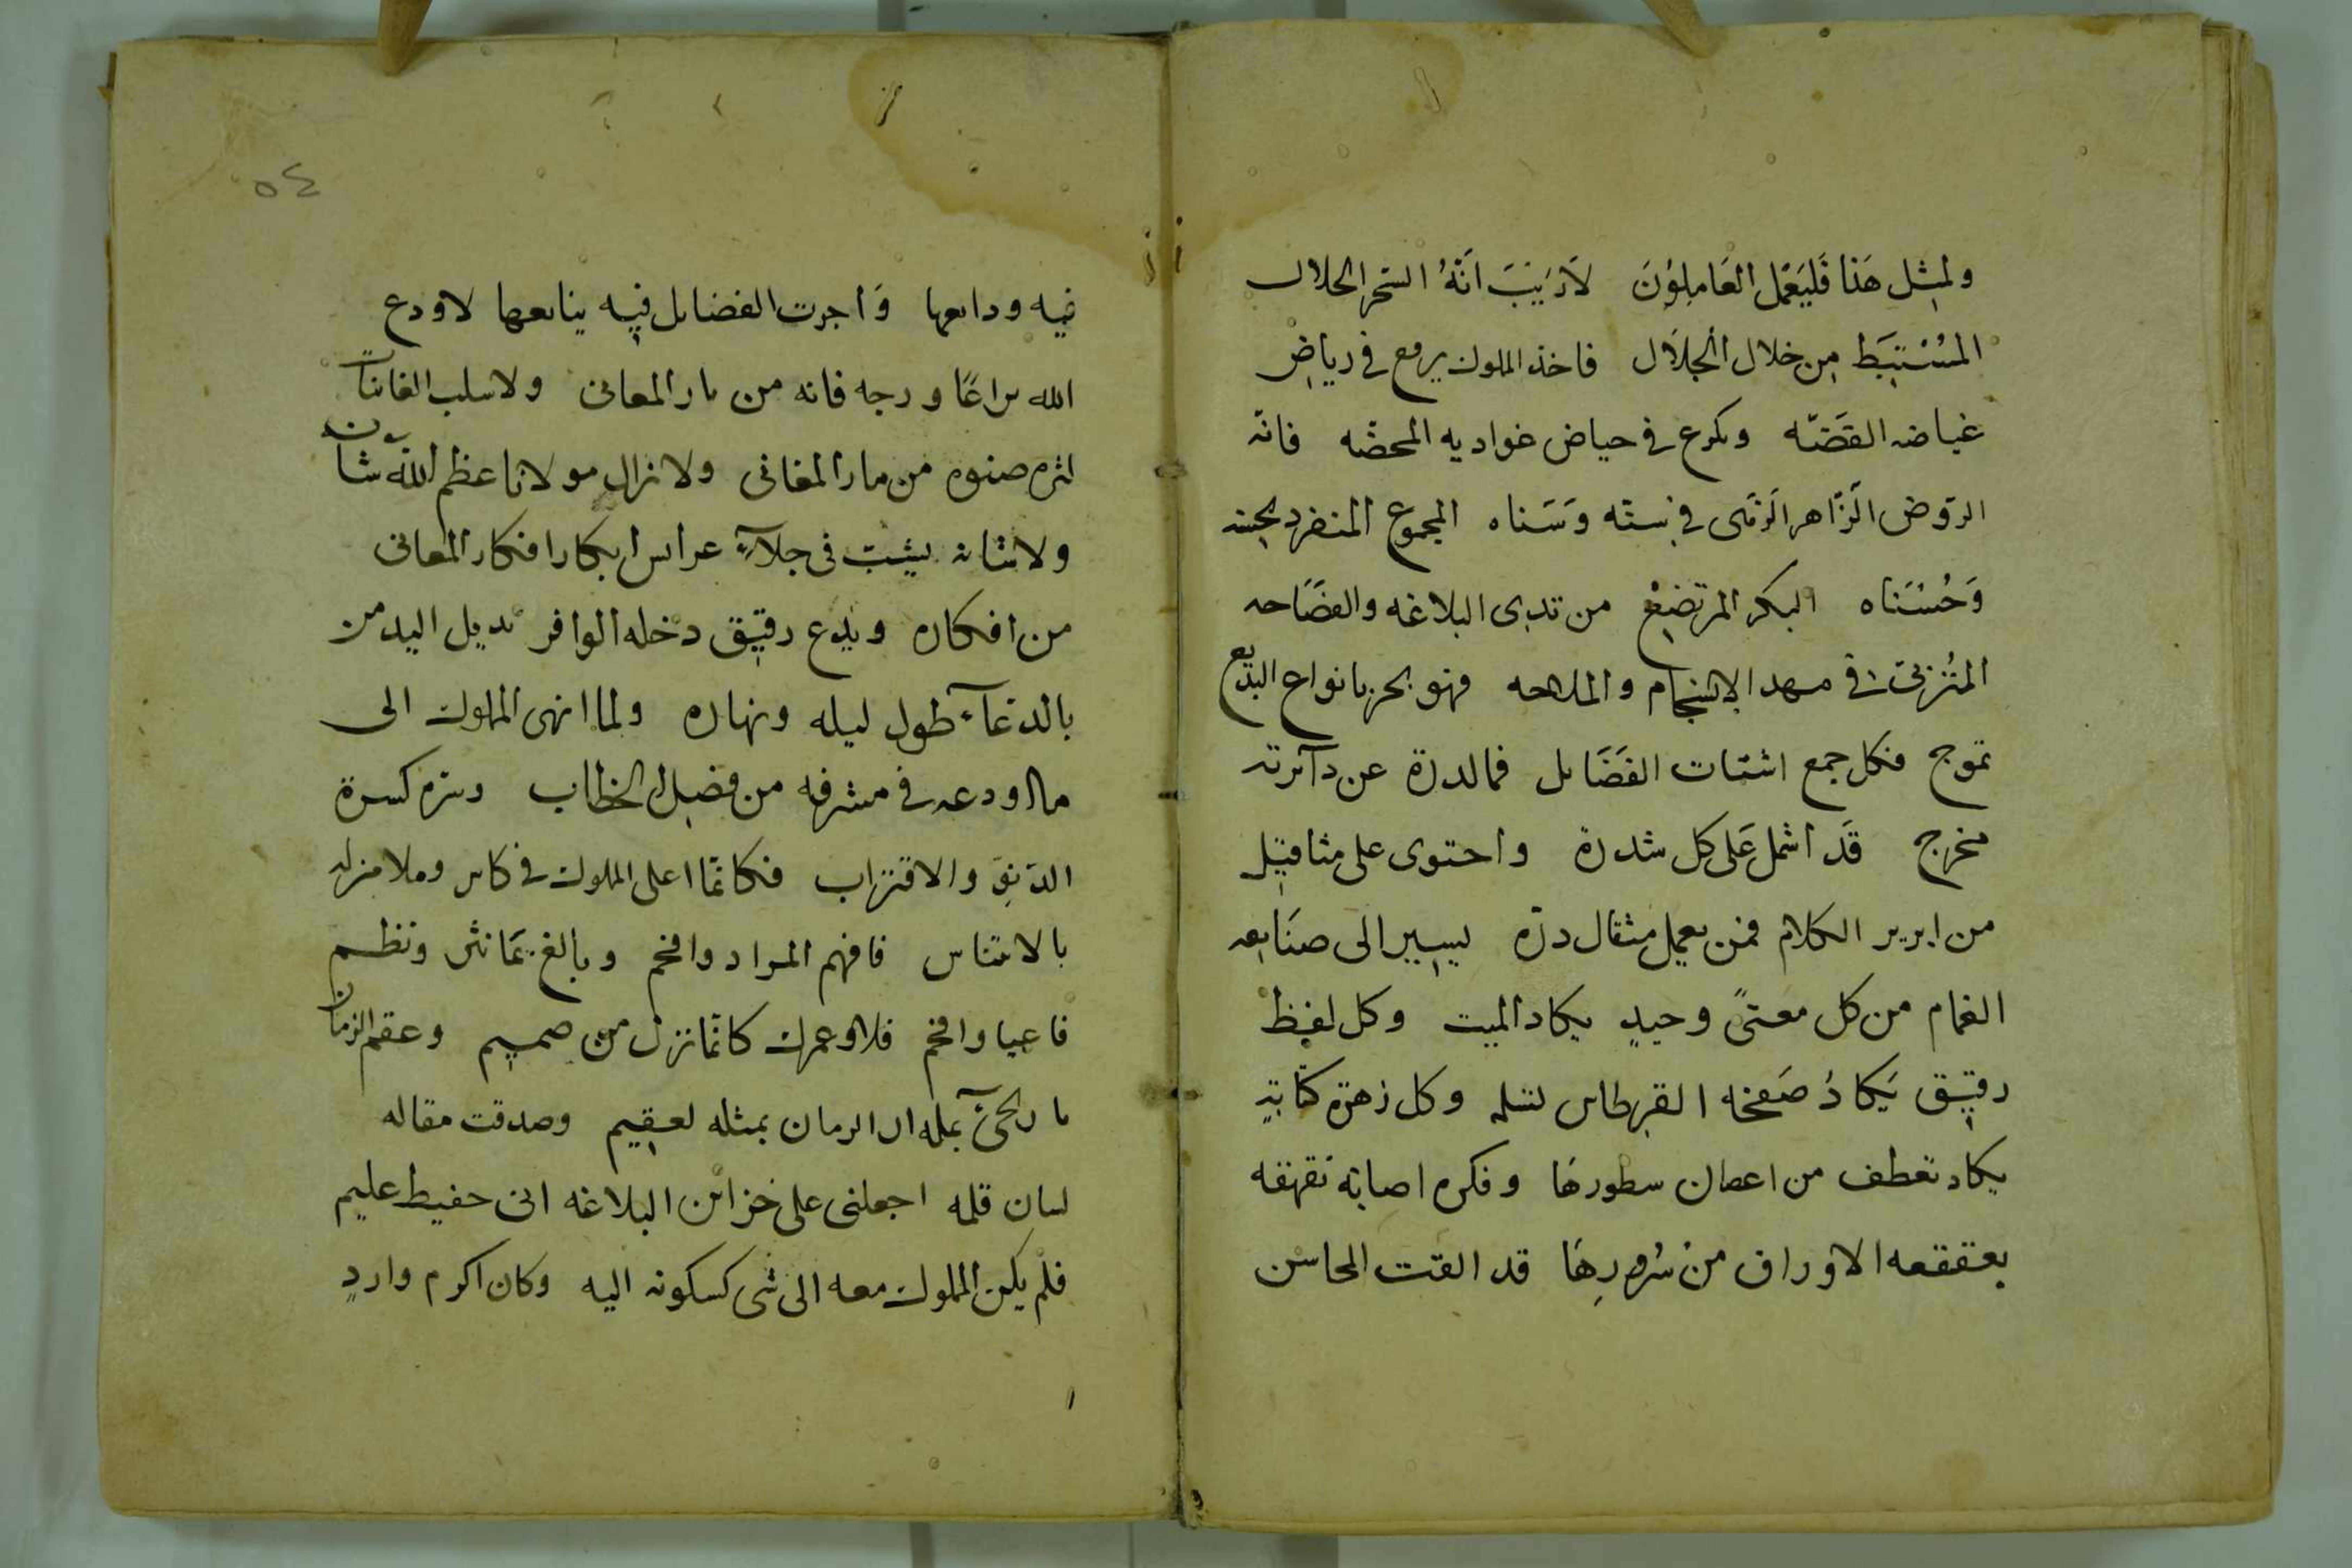 ولمثل هَذا فَليَعْمَل العَامِلوُنَ لاَرَيَبَ اَنَّهُ السّحر الحلال
المسُتنبَط مِن خلال الجَلاَل فاخذ المملوك يرمع فى رياضِ
غياضه الفَضّه ويكرع فى حياض غواديه المحضّه فانه
الرّوض الزّاهر الزّهى فى نسته وَسَناه المجموع المنفرد بحسنه
وَحُسْنَاه البكر المرتضع من ثدى البلاغه والفصَاحه
المتُزبى فى مهد الاِنسِجَام والملاحه فهو بحر بانواع البديع
تموج فكل جمع اشتات الفَضَايل فمالدرة عن دآئرته
مخرج قَد اشمل عَلى كل شذرة واحتوى على مثاقيل
من ابريز الكلام فمن يعمل مثقال درّه ليسير الى صنَايعه
الغمام من كل معنىً وحيدٍ يكاد الميت وكل لفظ
رقيق يَكادُ صَفحَه القرطاس وكل زهرة كتابةٍ
يكاد تعطف من اغصان سطورهَا وفكره اصابة تقهقه
بعقعقه الاوراق منْ سُرورِهَا قد القت المحاسن
٥٤
فيه ودايعها وَاجرت الفضايل فيه ينابيعها لاودع
الله يراعًا ورجه فانه من نار المعانى ولا سلب الغانيات
لثره صنوه من مار المغانى ولا زال مولانا عظم اللّه شان
ولا شانه يثبت فى جلآءِ عرايس ابكار افكار المعانى
من افكاره ويدع رقيق دخله الوافر مديل اليد من
بالدعآء طول ليله ونهاره ولما انهى المملوك الى
ما اودعه فى مشرفه من فضل الخطاب وسره كسرة
الدّنِوّ والاقتراب فكانما اعلى المملوك فى كاس وملا منزله
بالايناس فافهم المراد وافحم وبالغ بمَا نثر ونظم
فاعيا وافحم فلا وعمرك كانما نزل من صميم وعقم الزمان
ما ان يجئ بمثله ان الزمان بمثله لعقيم وصدقت مقاله
لسان قلمه اجعلنى على خزائن البلاغه انى حفيظ عليم
فلم يكن المملوك معه الى شى كسكونه اليه وكان اكرم واردٍ